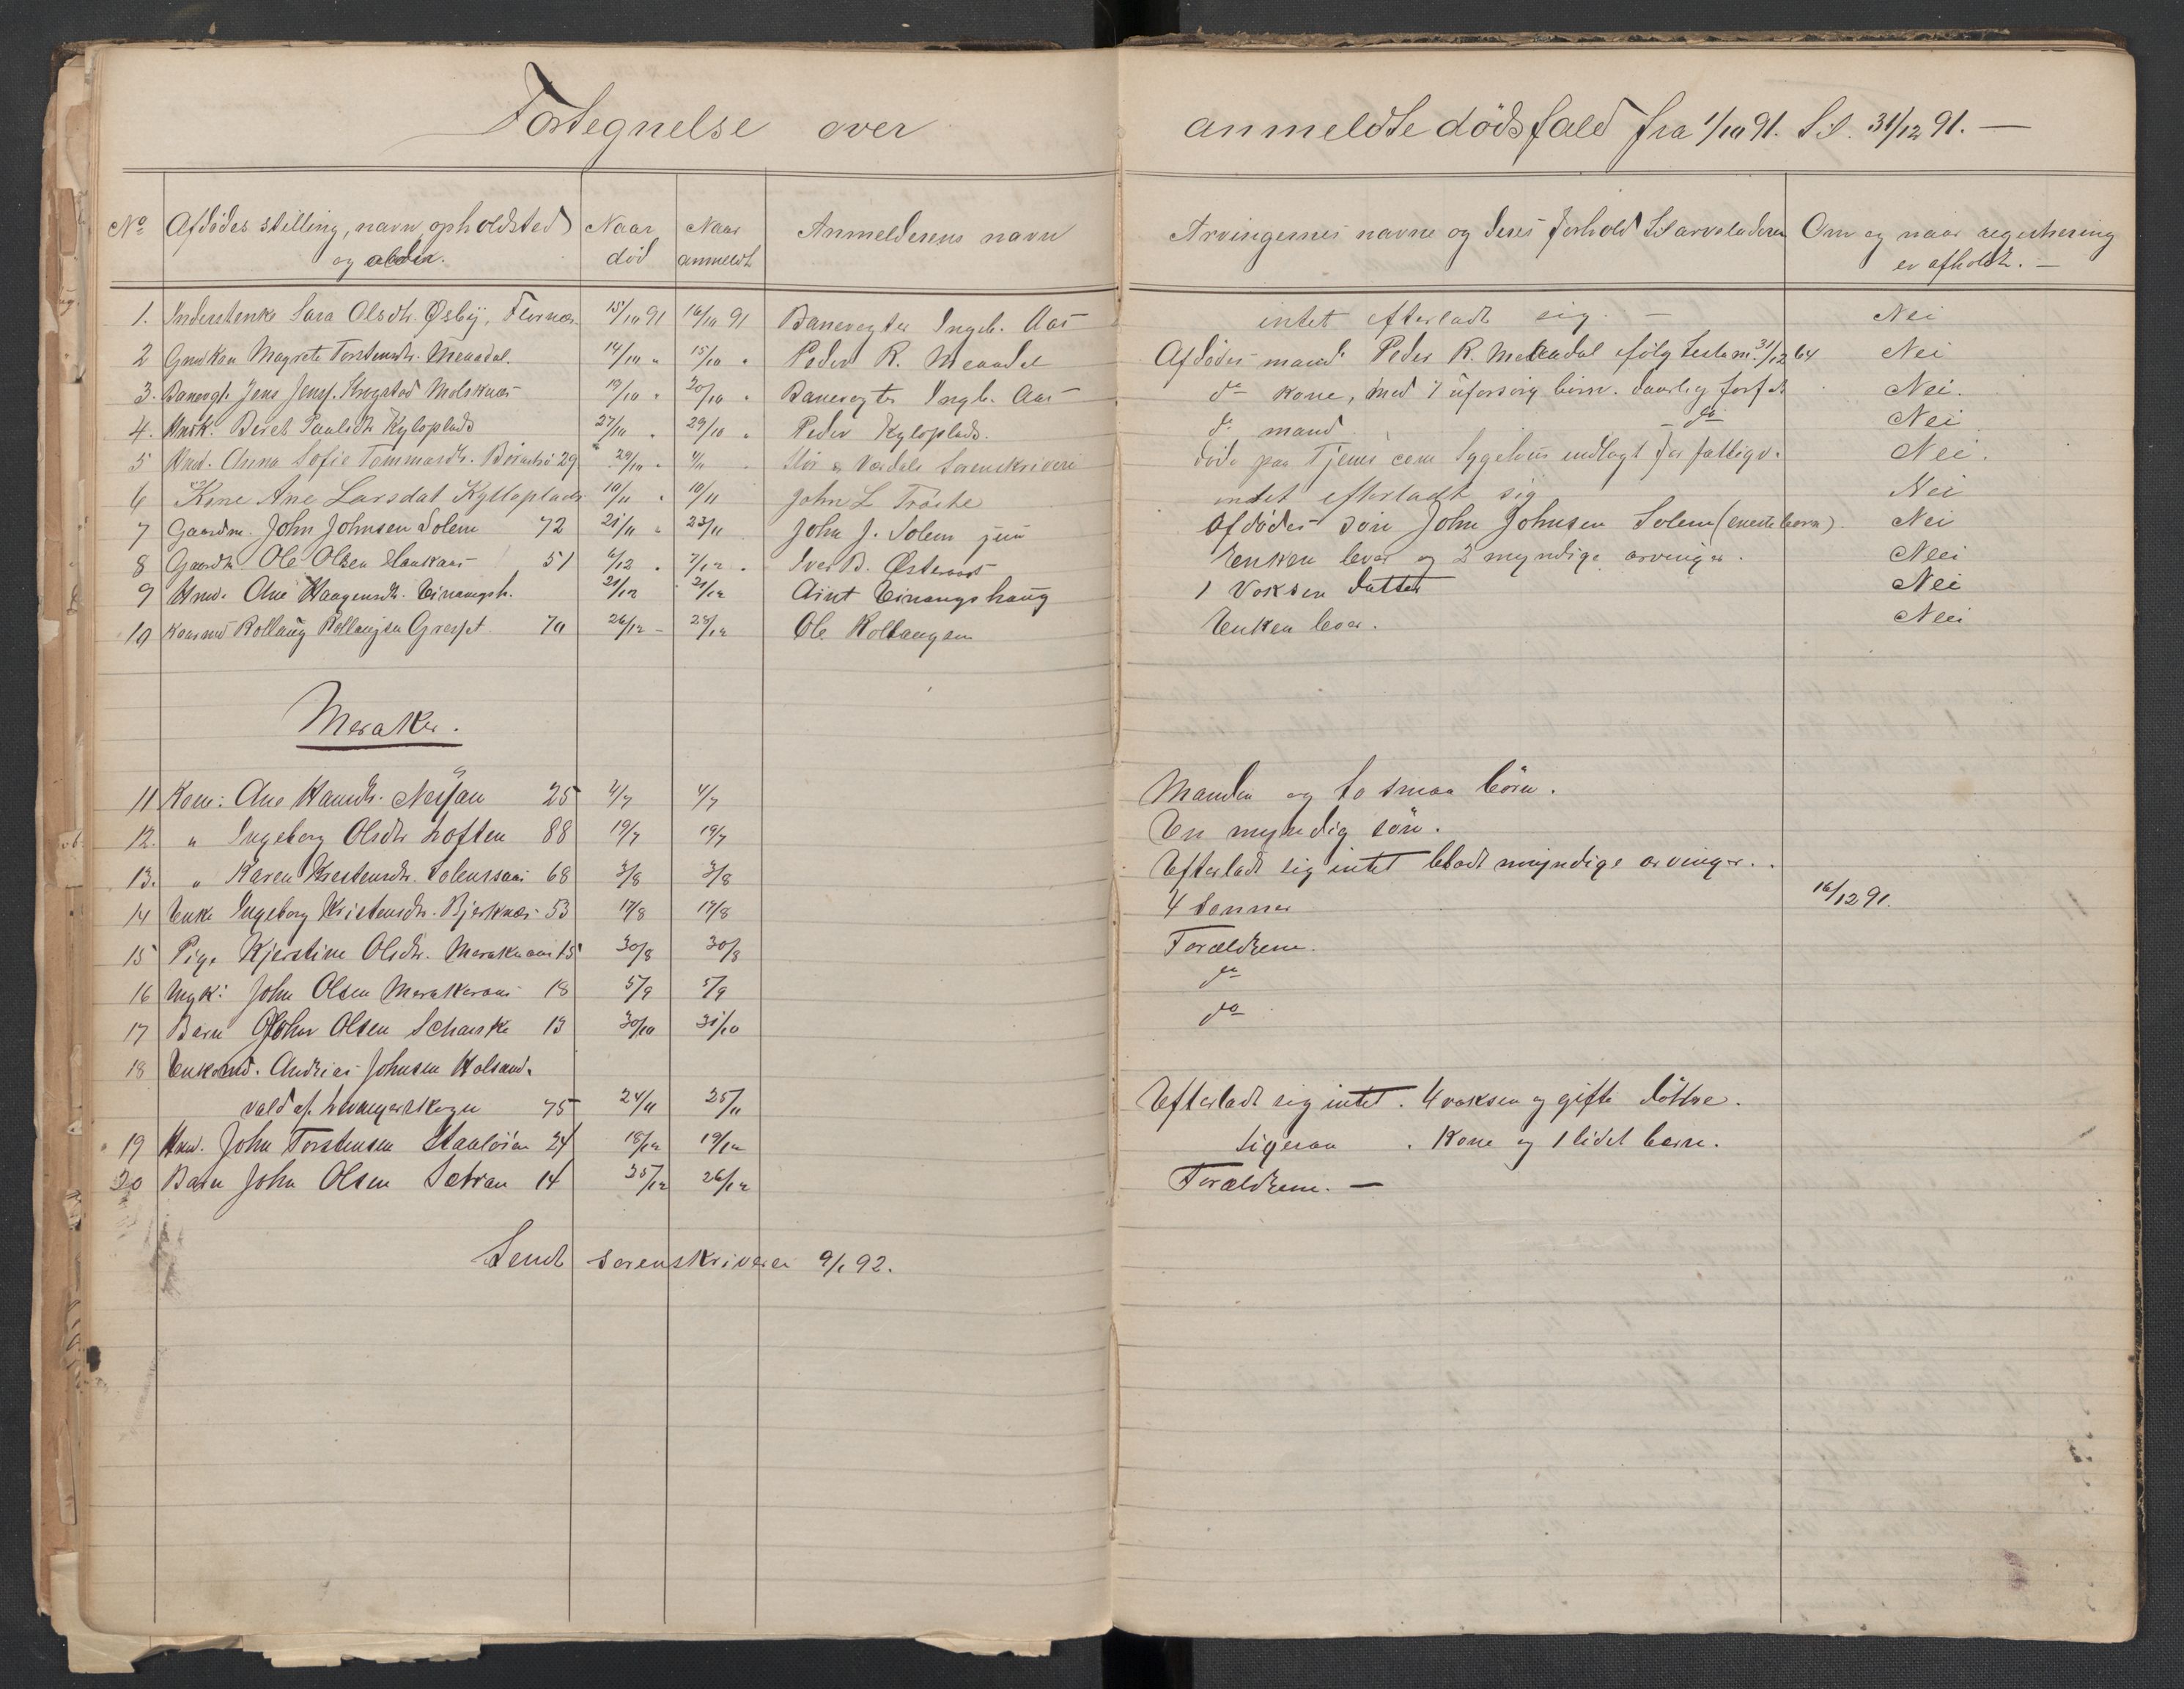 Fortegnelse over anmeldte dödsfald fra 1/10 91. til 31/12 91. —
No Afdödes stilling, navn, opholdsted Naar Naar Anmelderens navn Arvingernes navne og deres forhold til arveladeren Om og naar registrering
og alder. död anmeldt er afholdt. —
1. Inderstenke Sara Olsdtr. Øsbÿ, Flornæs 15/10 91 16/10 91 Banevogter Ingeb. Aas intet efterladt sig. — Nei
2 Gmdkone Magrete Torstensdtr. Meaadal. 14/10 " 15/10 " Peder R. Meaadal Afdödes mand Peder R. Meaadal ifölg testam. 31/12 64 Nei
3. Banevgt. Jens Jens. Krogstad Molsknæs 19/10 " 20/10 " Banevogter Ingb. Aas do kone, med 7 uforsörg börn. daarlig forf. Nei.
4. Hmdk. Beret Paulsdtr Kyloplads 27/10 " 29/10 " Peder Kyloplads. do mand — do Nei
5 Hmd. Anna Sofie Tommasdtr. 29 29/10 " Stör & Værdals Sorenskriveri döde paa Tjenes com Sygehus indlagt for fattigv. Nei.
6 Kone Ane Larsdat Kylloplads 10/11 " 10/11 John L Tröite intet efterladt sig Nei
7 Gaardm. John Johnsen Solem 72 21/11 " 23/11 John J. Solem jun Afdödes sön John Johnsen Solem (eneste barn). Nei
8 Gaardb. Ole Olsen Haukaas 51 6/12 " 7/12 " Iver B. Østeraas Enken lever og 2 myndige arvinger. Nei
9 Hmd. Ane Haagensdtr. Einangsh. 21/12 21/12 Aint Einangshaug 1 Voksen datter Nei
10 Kaarmd Rollaug Rollaugsen Gresset 70 26/12 - 28/12 Ole Rollaugsen Enken lever. Nei
Meraker.
11 Kone: Ane Hansdtr. Nersan 25 4/7 4/7 Manden og to smaa börn.
12. " Ingeborg Olsdtr Loften 88 19/7 19/7 En myndig sön.
13. " Karen Krestensdtr. 68 3/8 3/8 Efterladt sig intet blodt myndige arvinger.
14 Enke Ingeborg Kristensdtr. Bjerknæs 53 17/8 17/8 4 Sonner 16/12 91.
15 Pige Kjerstine Olsdtr. Merakeraas 15 30/8 30/8 Forældrene.
16 Ungk: John Olsen Merakeraas 18 5/9 5/9 do
17 Barn John Olsen Scharske 13 30/10 31/10 do
18 Enkemd. Andrias Johnsen Holsand.
vald af Levangerskogn 75 24/11 25/11 Efterladt sig intet. 4 voksen og gifte döttre.
19 Hmd. John Torstensen Staalöien 24 18/12 19/12 Ligesaa. Kone og 1 lidet barn.
20 Barn John Olsen Setran 14 25/12 26/12 Forældrene. —
Sendt sorenskriveren 9/1 92.